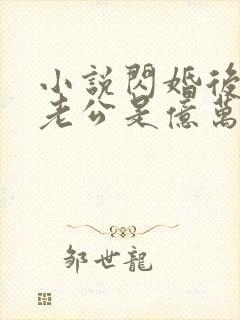 小說閃婚後
老公是億萬
鄒世龍